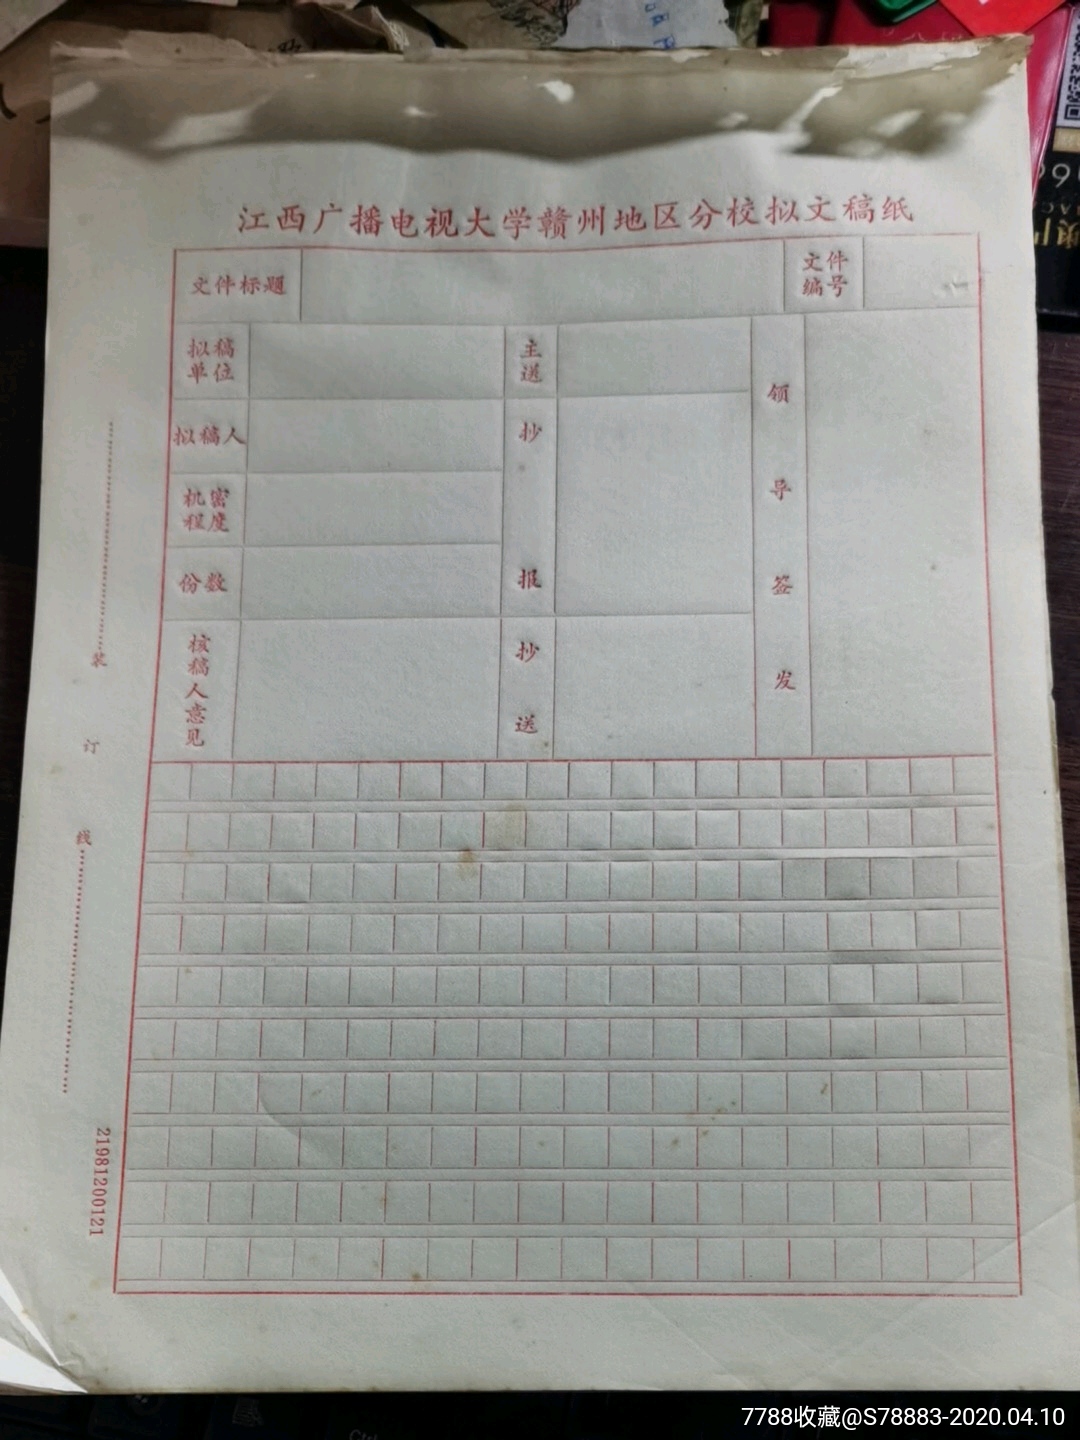 江西广播电视大学赣州地区分校拟文稿纸
文件标题
文件
编号
拟稿
单位
主
送
领
导
签
发
拟稿人
抄
报
机密
程度
份数
核
稿
人
意
见
抄
送
装
订
线
21981200121
7788收藏@S78883-2020.04.10